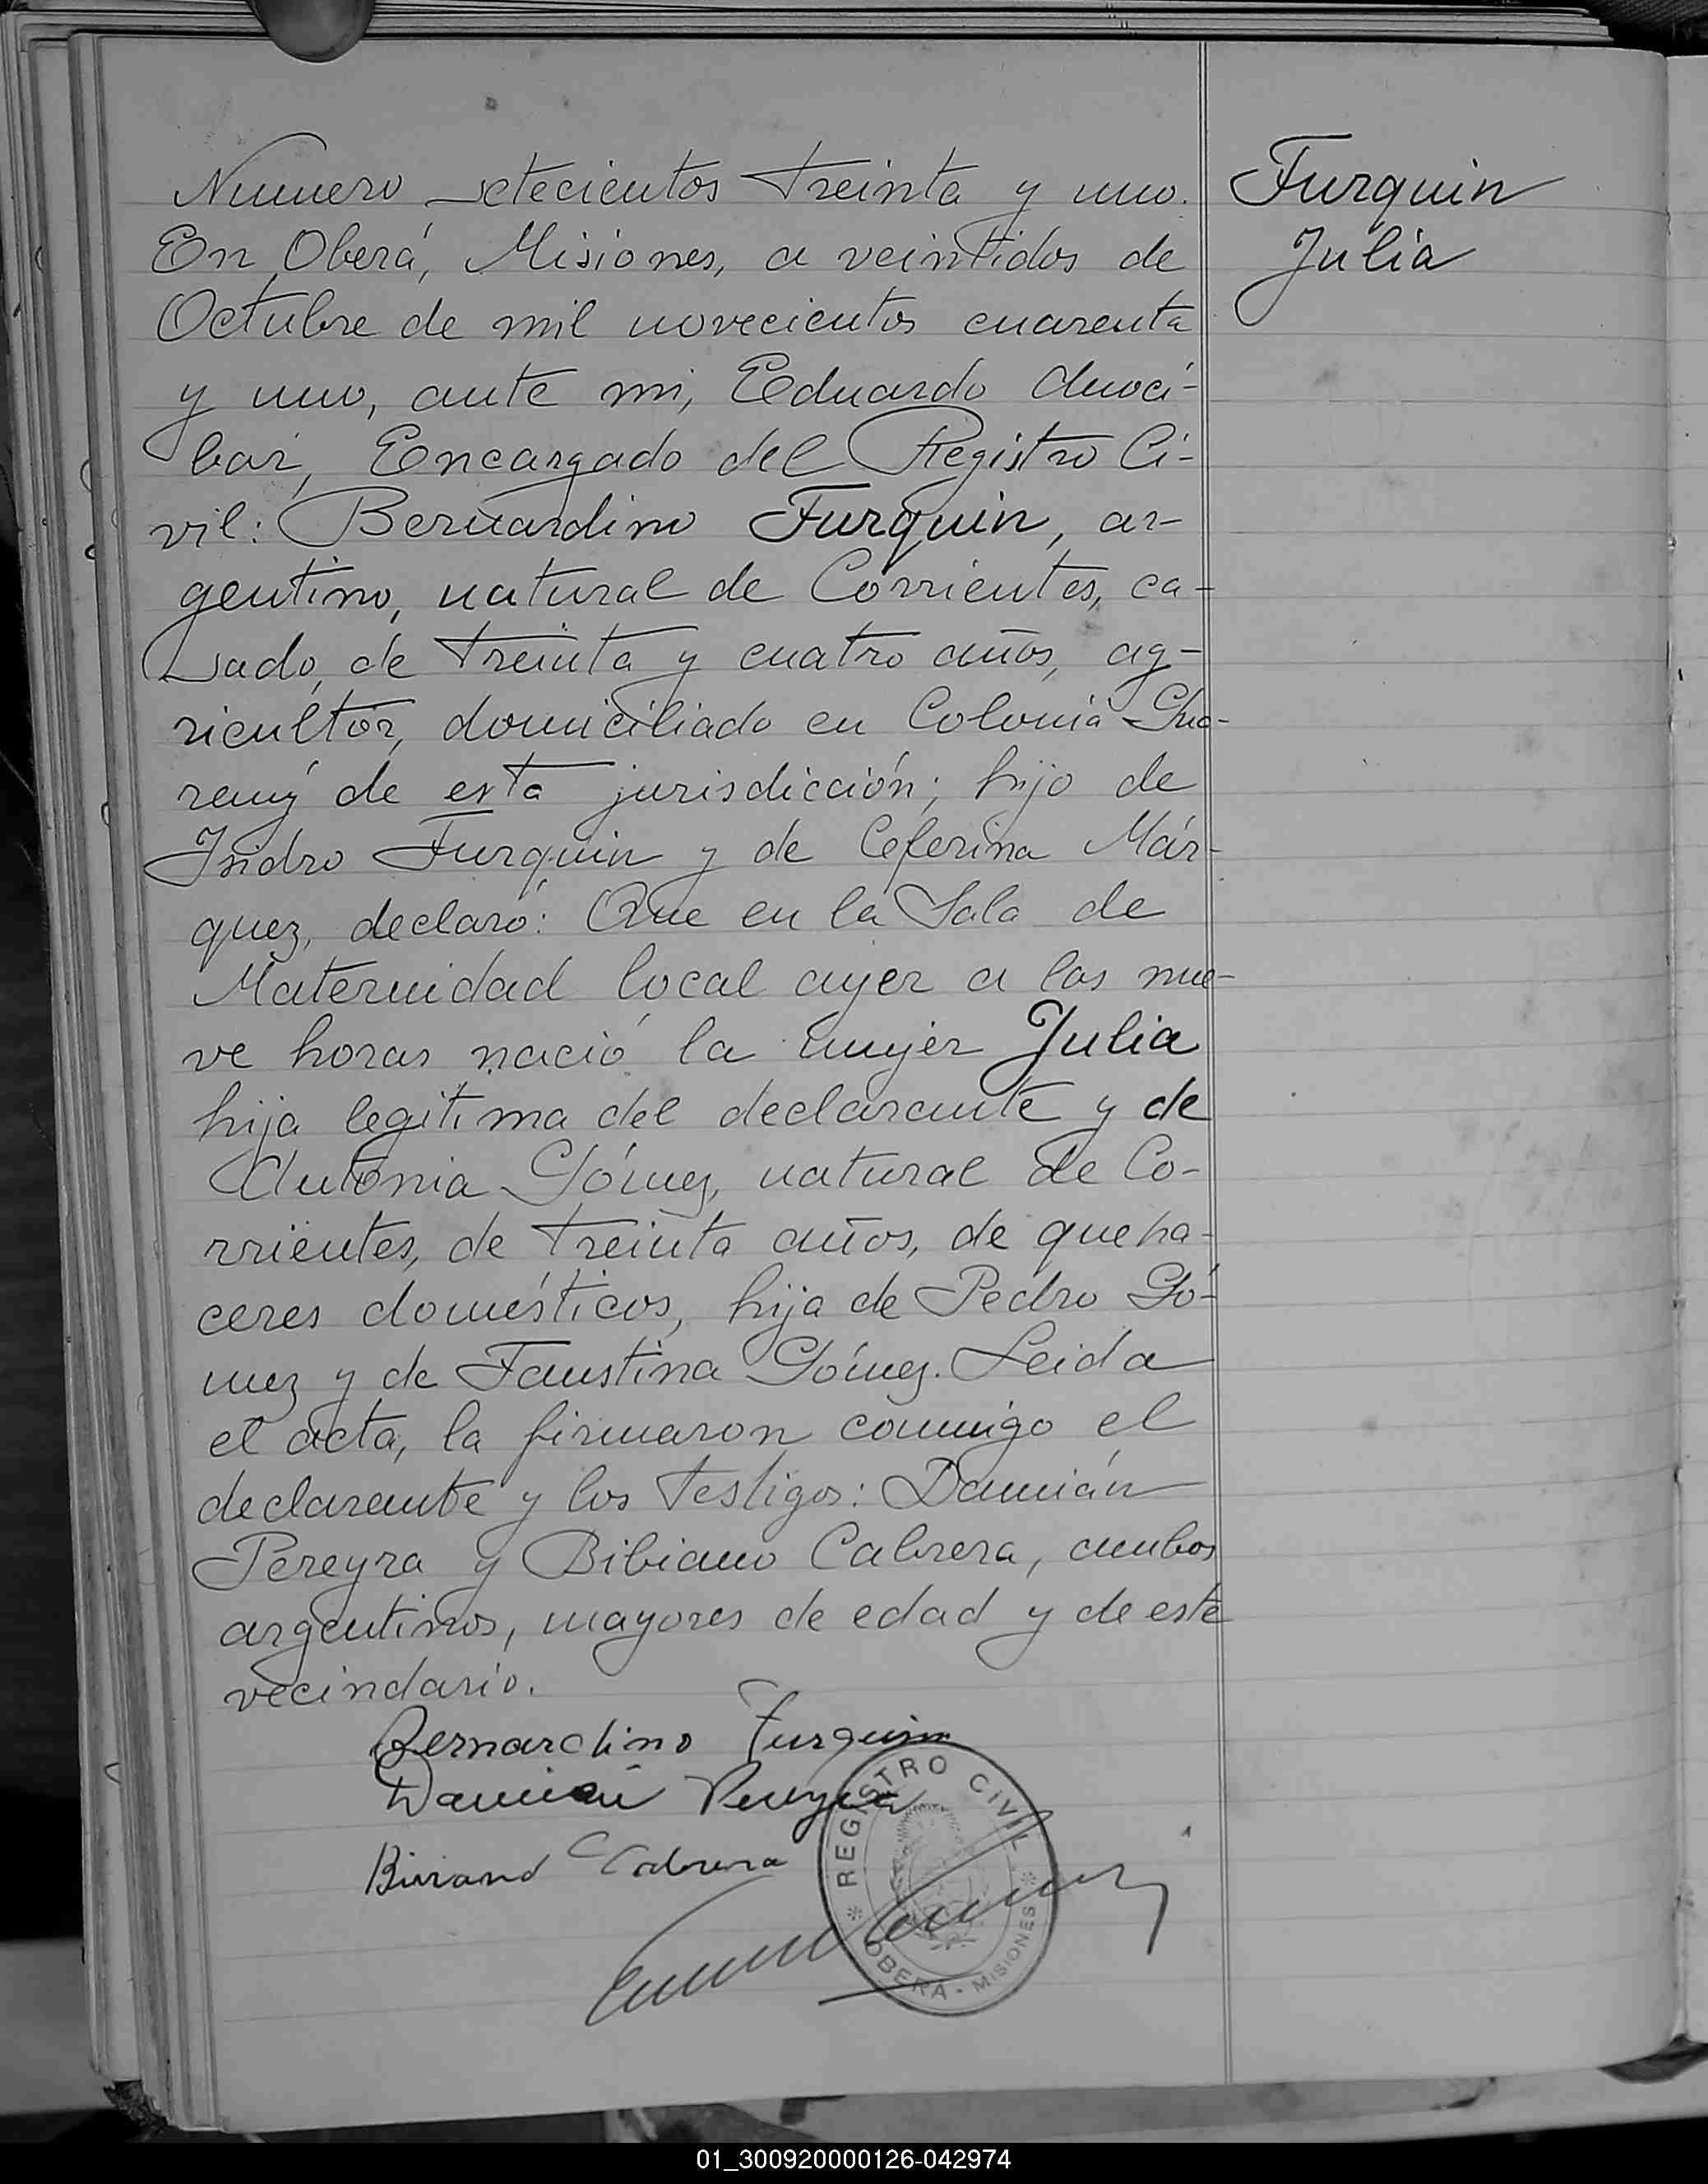 Numero setecientos treinta y uno.
En Oberá, Misiones, a veintidos de
Octubre de mil novecientos cuarenta
y uno, ante mi, Eduardo Amoci-
bar, Encargado del Registro Ci-
vil: Bernardino Furquin, ar-
gentino, natural de Corrientes, ca-
sado, de treinta y cuatro años, ag-
ricultor, domiciliado en Colonia Gua-
raný de esta jurisdicción; hijo de
Isidro Furquin y de Ceferina Már-
quez, declaró: Que en la Sala de
Maternidad local ayer a las nue-
ve horas nació la mujer Julia
hija legitima del declarante y de
Antonia Gómez, natural de Co-
rrientes, de treinta años, de queha-
ceres domésticos, hija de Pedro Gó-
mez y de Faustina Gómez. Leida
el acta, la firmaron conmigo el
declarante y los testigos: Damián
Pereyra y Bibiano Cabrera, ambos
argentinos, mayores de edad y de este
vecindario.
Furquin
Julia
Bernardino Furquin
Damián Pereyra
Biviano Cabrera
REGISTRO CIVIL
OBERÁ - MISIONES
01_300920000126-042974